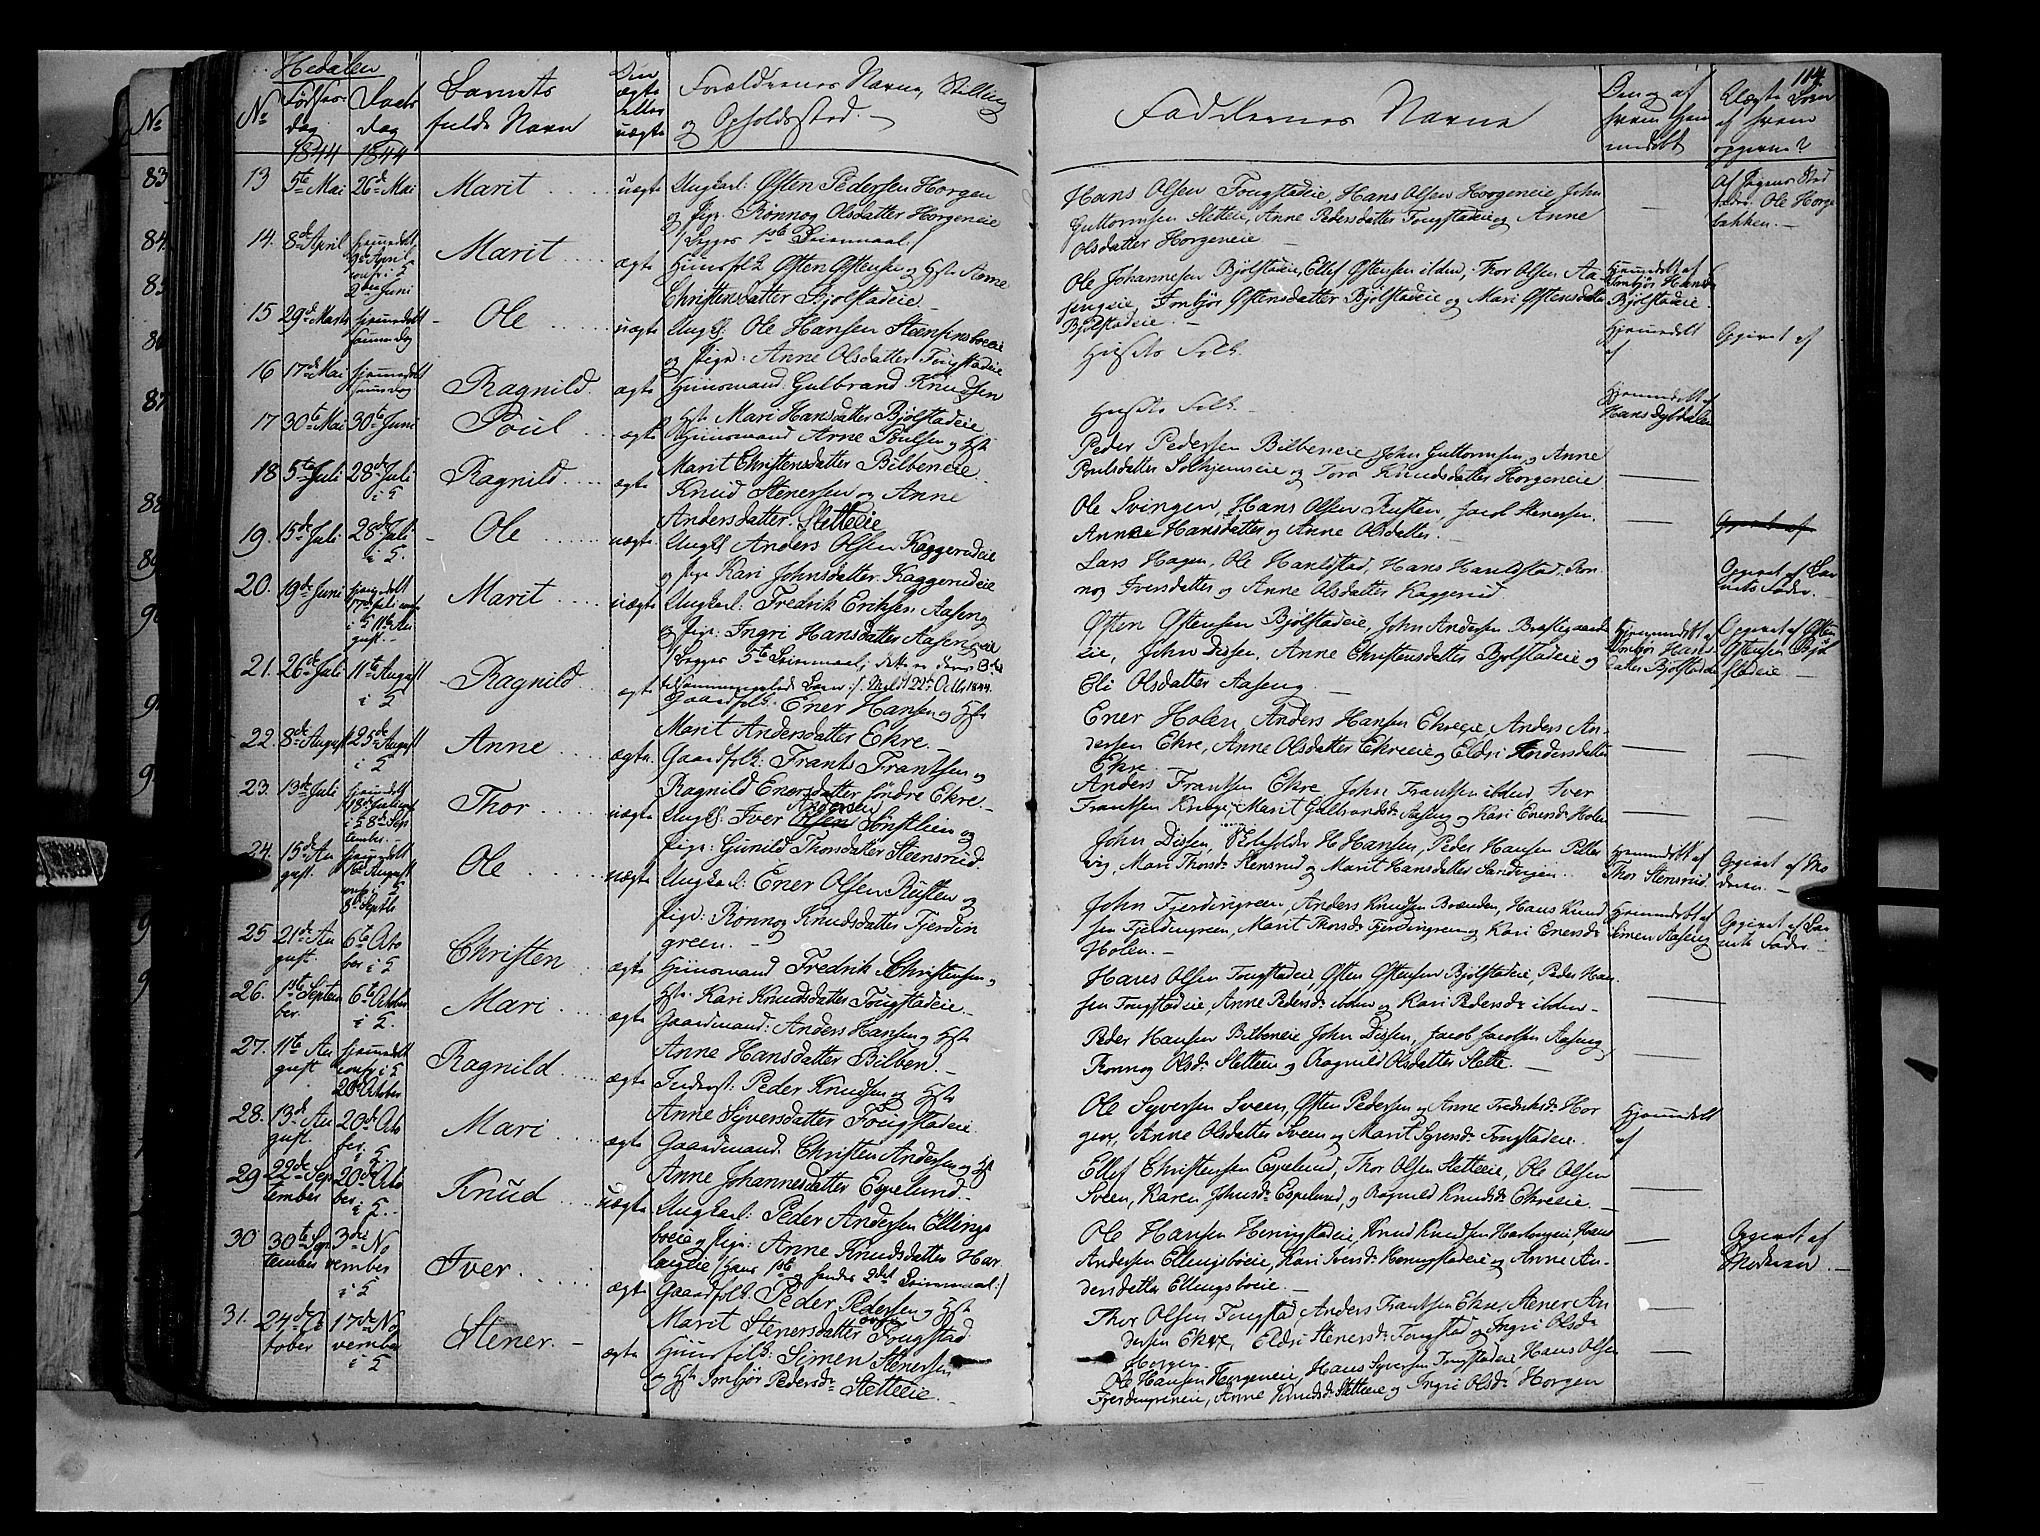 114
Hedalen
No
No
Fødsels-
dag
1844
Daabs
dag
1844
Barnets
fulde Navn
Om
ægte
eller
uægte
Forældrenes Navne, Stilling
og Opholdssted.
Faddernes Navne
Uægte Børn
af hvem
opgivne?
83
84
85
86
87
88
89
13
5te Mai
26de Mai
Marit
uægte
Ungkarl: Østen Pedersen Horgen
og Pige: Rønnog Olsdatter Horgeneie
/: Begges 1ste Leiermaal :/
Hans Olsen Tougstadeie, Hans Olsen Horgeneie John
Guttormsen Stetteie, Anne Pedersdatter Tougstadeie og Anne
Olsdatter Horgeneie
Af Pigens
Ole Horge
bakken.
14.
8de April
hjemmedøbt
9de April
conf. i K
2den Juni
Marit
ægte
Huusfolk Østen Østensen og Hst Anne
Christensdatter Bjølstadeie
Ole Johannesen Bjølstadeie, Ellef Østensen ibdm, Thor Olsen Aa-
sengeie, Imbjør Østensdatter Bjølstadeie og Mari Østensdatter
Bjølstadeie.
Hjemmedøbt af
Imbjør Hansd.
Bjølstadeie
15
29de Marts
hjemmedøbt
samme dag
Ole
uægte
Ungk: Ole Hansen
og Pige: Anne Olsdatter Tougstadeie
Hjemmedøbt
af
Opgivet af
16
17de Mai
hjemmedøbt
samme dag
Ragnild
ægte
Huusmand. Gulbrand Knudsen
Hst Mari Hansdatter Bjølstadeie
Hjemmedøbt af
17
30te Mai
30te Juni
Poul
ægte
Huusmand Arne Poulsen og Hst
Marit Christensdatter Bilbeneie
Peder Pedersen Bilbeneie, John Guttormsen, og Anne
Poulsdatter Solhjemseie og Tora Knudsdatter Horgeneie
18
5te Juli
28de Juli
i K
Ragnild
ægte
Knud Stenersen og Anne
Andersdatter. Stetteie
Ole Svingen, Hans Olsen Rusten, Jacob Stenersen.
Anne Hansdatter og Anne Olsdatter.
Opgivet af
19.
15de Juli
28de Juli
i K.
Ole
uægte
Ungk Anders Olsen Kaggerudeie
og Pige Kari Johnsdatter. Kaggerudeie
Lars Hagen, Ole Haukstad, Hans Haukstad, Røn
nog Iversdatter og Anne Olsdatter Kaggerud
Opgivet af Bar
nets Fader.
20.
19de Juni
hjemmedøbt
17de Juli conf
i K 11te Au
gust.
Marit
uægte
Ungkarl: Fredrik Eriksen Aaseng
og Pige: Ingri Hansdatter Aasengeie
/: Begges 5te Leiermaal, dette er deres
Barn :/ Meldt 22de Octbr 1844.
Østen Østensen Bjølstadeie, John Andersen
eie, John Dissen, Anne Christensdatter Bjølstadeie og
Eli Olsdatter Aaseng
Hjemmedøbt af
Imbjør Hans-
datter Bjølstadeie
Opgivet af Østen
Østensen Bjøl
stadeie
21.
26de Juli
11te August
i K
Ragnild
ægte
Gaardfolk: Ener Hansen og Hst
Marit Andersdatter Ekre.
Ener Holen, Anders Hansen Ekreeie Anders An-
dersen Ekre, Anne Olsdatter Ekreeie og Eldri Andersdatter
Ekre
22.
8de August
25de August
i K
Anne
ægte.
Gaardfolk: Frants Frantsen og
Ragnild Enersdatter søndre Ekre.
Anders Frantsen Ekre John Frantsen ibdm, Iver
Frantsen Marit Gulbrandsdr Aaseng og Kari Enersdr Holen
23.
13de Juli
hjemmedøbt
18de Juli conf
i K 8de Sep
tember.
Thor
uægte
Ungk. Iver Olsen Andersen Sønstlien og
Pige: Gunild Thorsdatter Steensrud.
John Dissen, H Hansen, Peder Hansen
vig, Mari Thorsdr Stensrud og Marit Hansdatter Sandvigen.
Hjemmedøbt af
Thor Stensrud.
Opgivet af Mo
deren.
24.
15de Au
gust.
hjemmedøbt
August
conf. i K
8de Septbr
Ole
uægte
Ungkarl: Ener Olsen Rusten og
Pige: Rønnog Knudsdatter Fjerdin
green.
John Fjerdingreen, Anders Knudsen Brænden, Hans Knud
sen Fjerdingreen, Marit Thorsdr Fjerdingreen og Kari Enersdr
Holen.
Hjemmedøbt af
Simen Aaseng
Opgivet af Bar
nets Fader.
25
21de Au
gust.
6te Octo
ber i K
Christen
ægte
Huusmand Fredrik Christensen
Hst. Kari Knudsdatter Tougstadeie.
Hans Olsen Tougstadeie, Østen Østensen Bjølstadeie, Peder Han
sen Tougstadeie, Anne Pedersdr ibdm og Kari Pedersdr ibdm
26.
1ste Septem
ber.
6te October
i K.
Mari
ægte
Gaardmand: Anders Hansen og Hst
Anne Hansdatter Bilben.
Peder Hansen Bilbeneie John Dissen, Jacob Jacobsen Aaseng
Rønnog Olsdr Stetteen og Ragnild Olsdatter Stette.
27.
11te Au
gust
hjemmedøbt
conf. i K
20de October
Ragnild
ægte
Inderst: Peder Knudsen og Hst
Anne Syversdatter Tougstadeie.
Ole Syversen Sveen, Østen Pedersen og Anne Fredriksdr Hor
gen, Anne Olsdatter Sveen og Marit Syversdr Tougstadeie.
Hjemmedøbt
af
28.
13de Au
gust.
20de Octo
ber.
i K
Mari
ægte
Gaardmand. Christen Andersen og Hst
Anne Johannesdatter Espelund
Ellef Christensen Espelund, Thor Olsen Stetteie, Ole Olsen
Sveen, Karen Johnsdr Espelund, og Ragnild Knudsdr Ekreeie.
29
22de Sep
tember
20de Octo
ber.
i K.
Knud
uægte
Ungkarl: Peder Andersen Ellings
boeie og Pige: Anne Knudsdatter Har
/: hans 1ste og hendes 2det Leiermaal :/
Ole Hansen Heningstadeie, Knud Knudsen Hans
Andersen Ellingsboeie, Kari Iversdr Heningstadeie og Anne An-
dersdatter Ellingsboeie.
Opgivet af
Moderen.
30
30te Sep
tember
3die No
vember
i K
Iver
ægte
Gaardfolk: Peder Pedersen og Hst
Marit Stenersdatter Tougstad
Thor Olsen Tougstad, Anders Frantsen Ekre, Stener An
dersen Ekre, Eldri Stenersdr Tougstad og Ingri Olsdr
Horgen.
31.
24de Oc
tober
17de No
vember
i K
Stener.
ægte
Huusfolk: Simen Stenersen
og Hst Imbjør Pedersdr Stetteeie.
Ole Hansen Horgeneie, Hans Syversen Tougstadeie, Hans Olsen
Fjerdingreneie, Anne Knudsdr Stetteeie og Ingri Olsdr Horgen